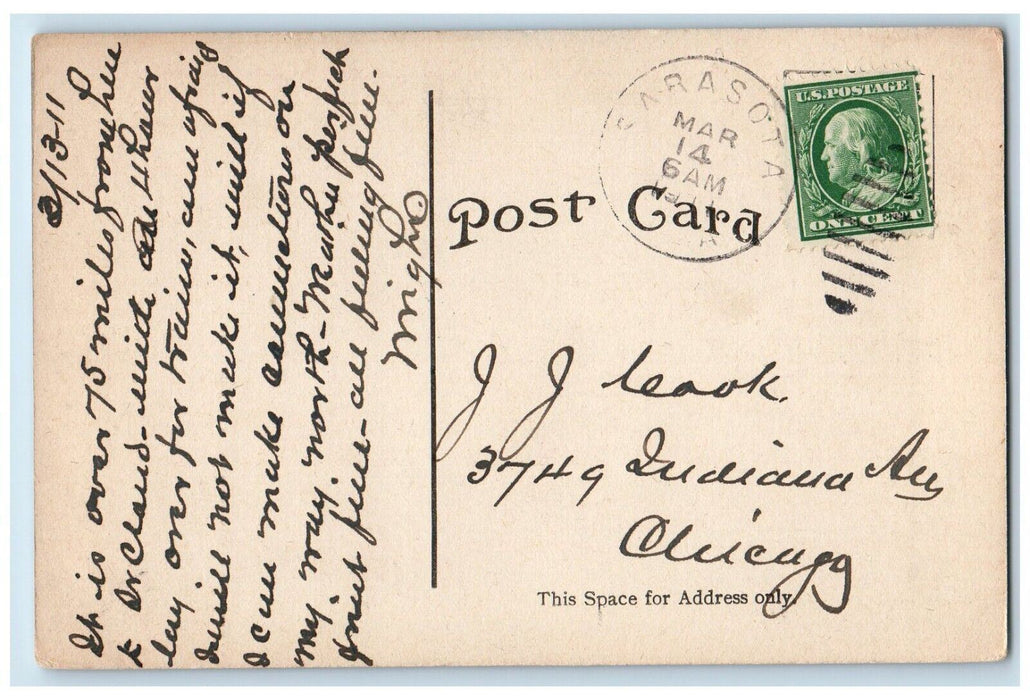 3/13-11
It is over 75 miles from here
to Dr Claus - with 4 hour
lay over for trains, am afraid
I will not make it, will if
I can make connections on
my way north - Mother perfect
joint fine - all feeling fine.
Wright
Post Card
SARASOTA
MAR
14
6AM
U.S. POSTAGE
ONE CENT
J J Cook.
3749 Indiana Av
Chicago
This Space for Address only.